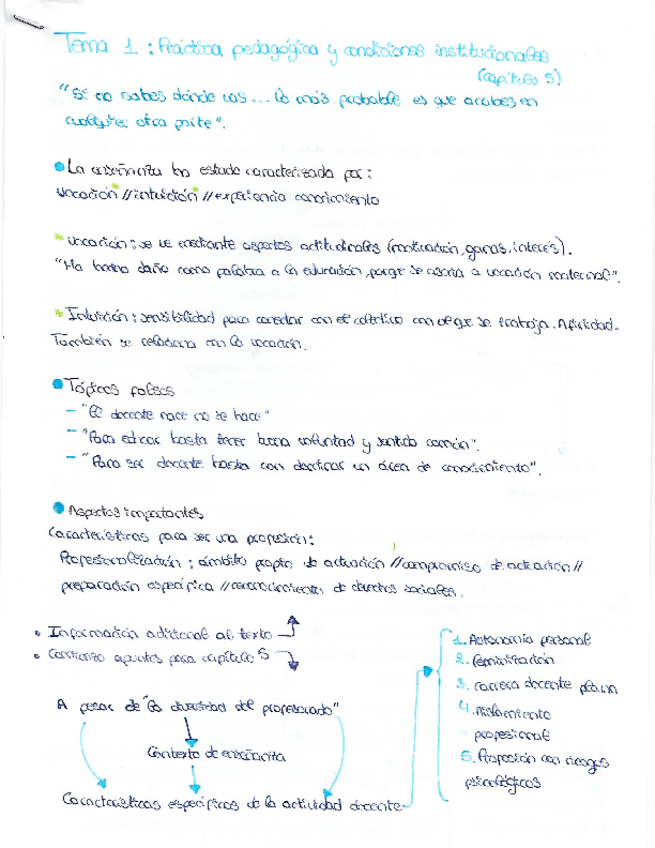 Tema 1 : Práctica pedagógica y condiciones institucionales
(capítulo 5)
"Si no sabes dónde vas... lo más probable es que acabes en
cualquier otra parte".
La enseñanza ha estado caracterizada por :
Vocación // intuición // experiencia conocimiento
* Vocación : se ve mediante aspectos actitudinales (motivación, ganas, interés).
"Ha hecho daño como palabra a la educación, porque se asocia a vocación maternal".
* Intuición : sensibilidad para conectar con el colectivo con el que se trabaja. Afinidad.
También se relaciona con la vocación.
Tópicos falsos
- "El docente nace no se hace"
- "Para educar basta tener buena voluntad y sentido común".
- "Para ser docente basta con dominar un área de conocimiento".
Aspectos importantes
Características para ser una profesión:
Profesionalización : ámbito propio de actuación // compromiso de actuación //
preparación específica // reconocimiento de derechos sociales.
• Información adicional al texto
• Comienzo apuntes para capítulo 5
A pesar de "la diversidad del profesorado"
Contexto de enseñanza
Características específicas de la actividad docente
1. Autonomía personal
2. Feminización
3. Carrera docente plana
4. Aislamiento
profesional
5. Profesión con riesgos
psicológicos